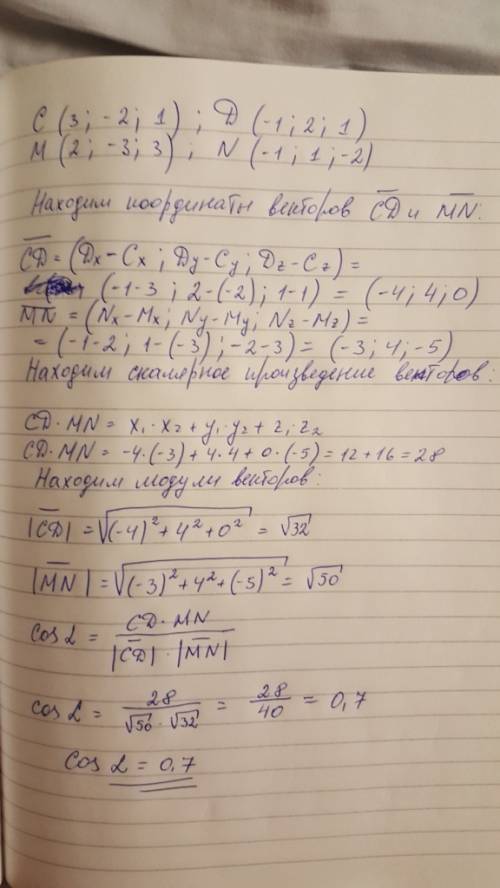 C (3; -2; 1) ; D (-1; 2; 1)
M (2; -3; 3) ; N (-1; 1; -2)
Находим координаты векторов C̅D̅ и M̅N̅:
C̅D̅ = (Dx - Cx; Dy - Cy; Dz - Cz) =
(-1-3; 2-(-2); 1-1) = (-4; 4; 0)
M̅N̅ = (Nx - Mx; Ny - My; Nz - Mz) =
= (-1-2; 1-(-3); -2-3) = (-3; 4; -5)
Находим скалярное произведение векторов:
CD·MN = x₁·x₂ + y₁·y₂ + z₁·z₂
CD·MN = -4·(-3) + 4·4 + 0·(-5) = 12 + 16 = 28
Находим модули векторов:
|C̅D̅| = √((-4)² + 4² + 0²) = √32
|M̅N̅| = √((-3)² + 4² + (-5)²) = √50
cos α = CD·MN / |C̅D̅|·|M̅N̅|
cos α = 28 / √50·√32 = 28/40 = 0,7
cos α = 0,7